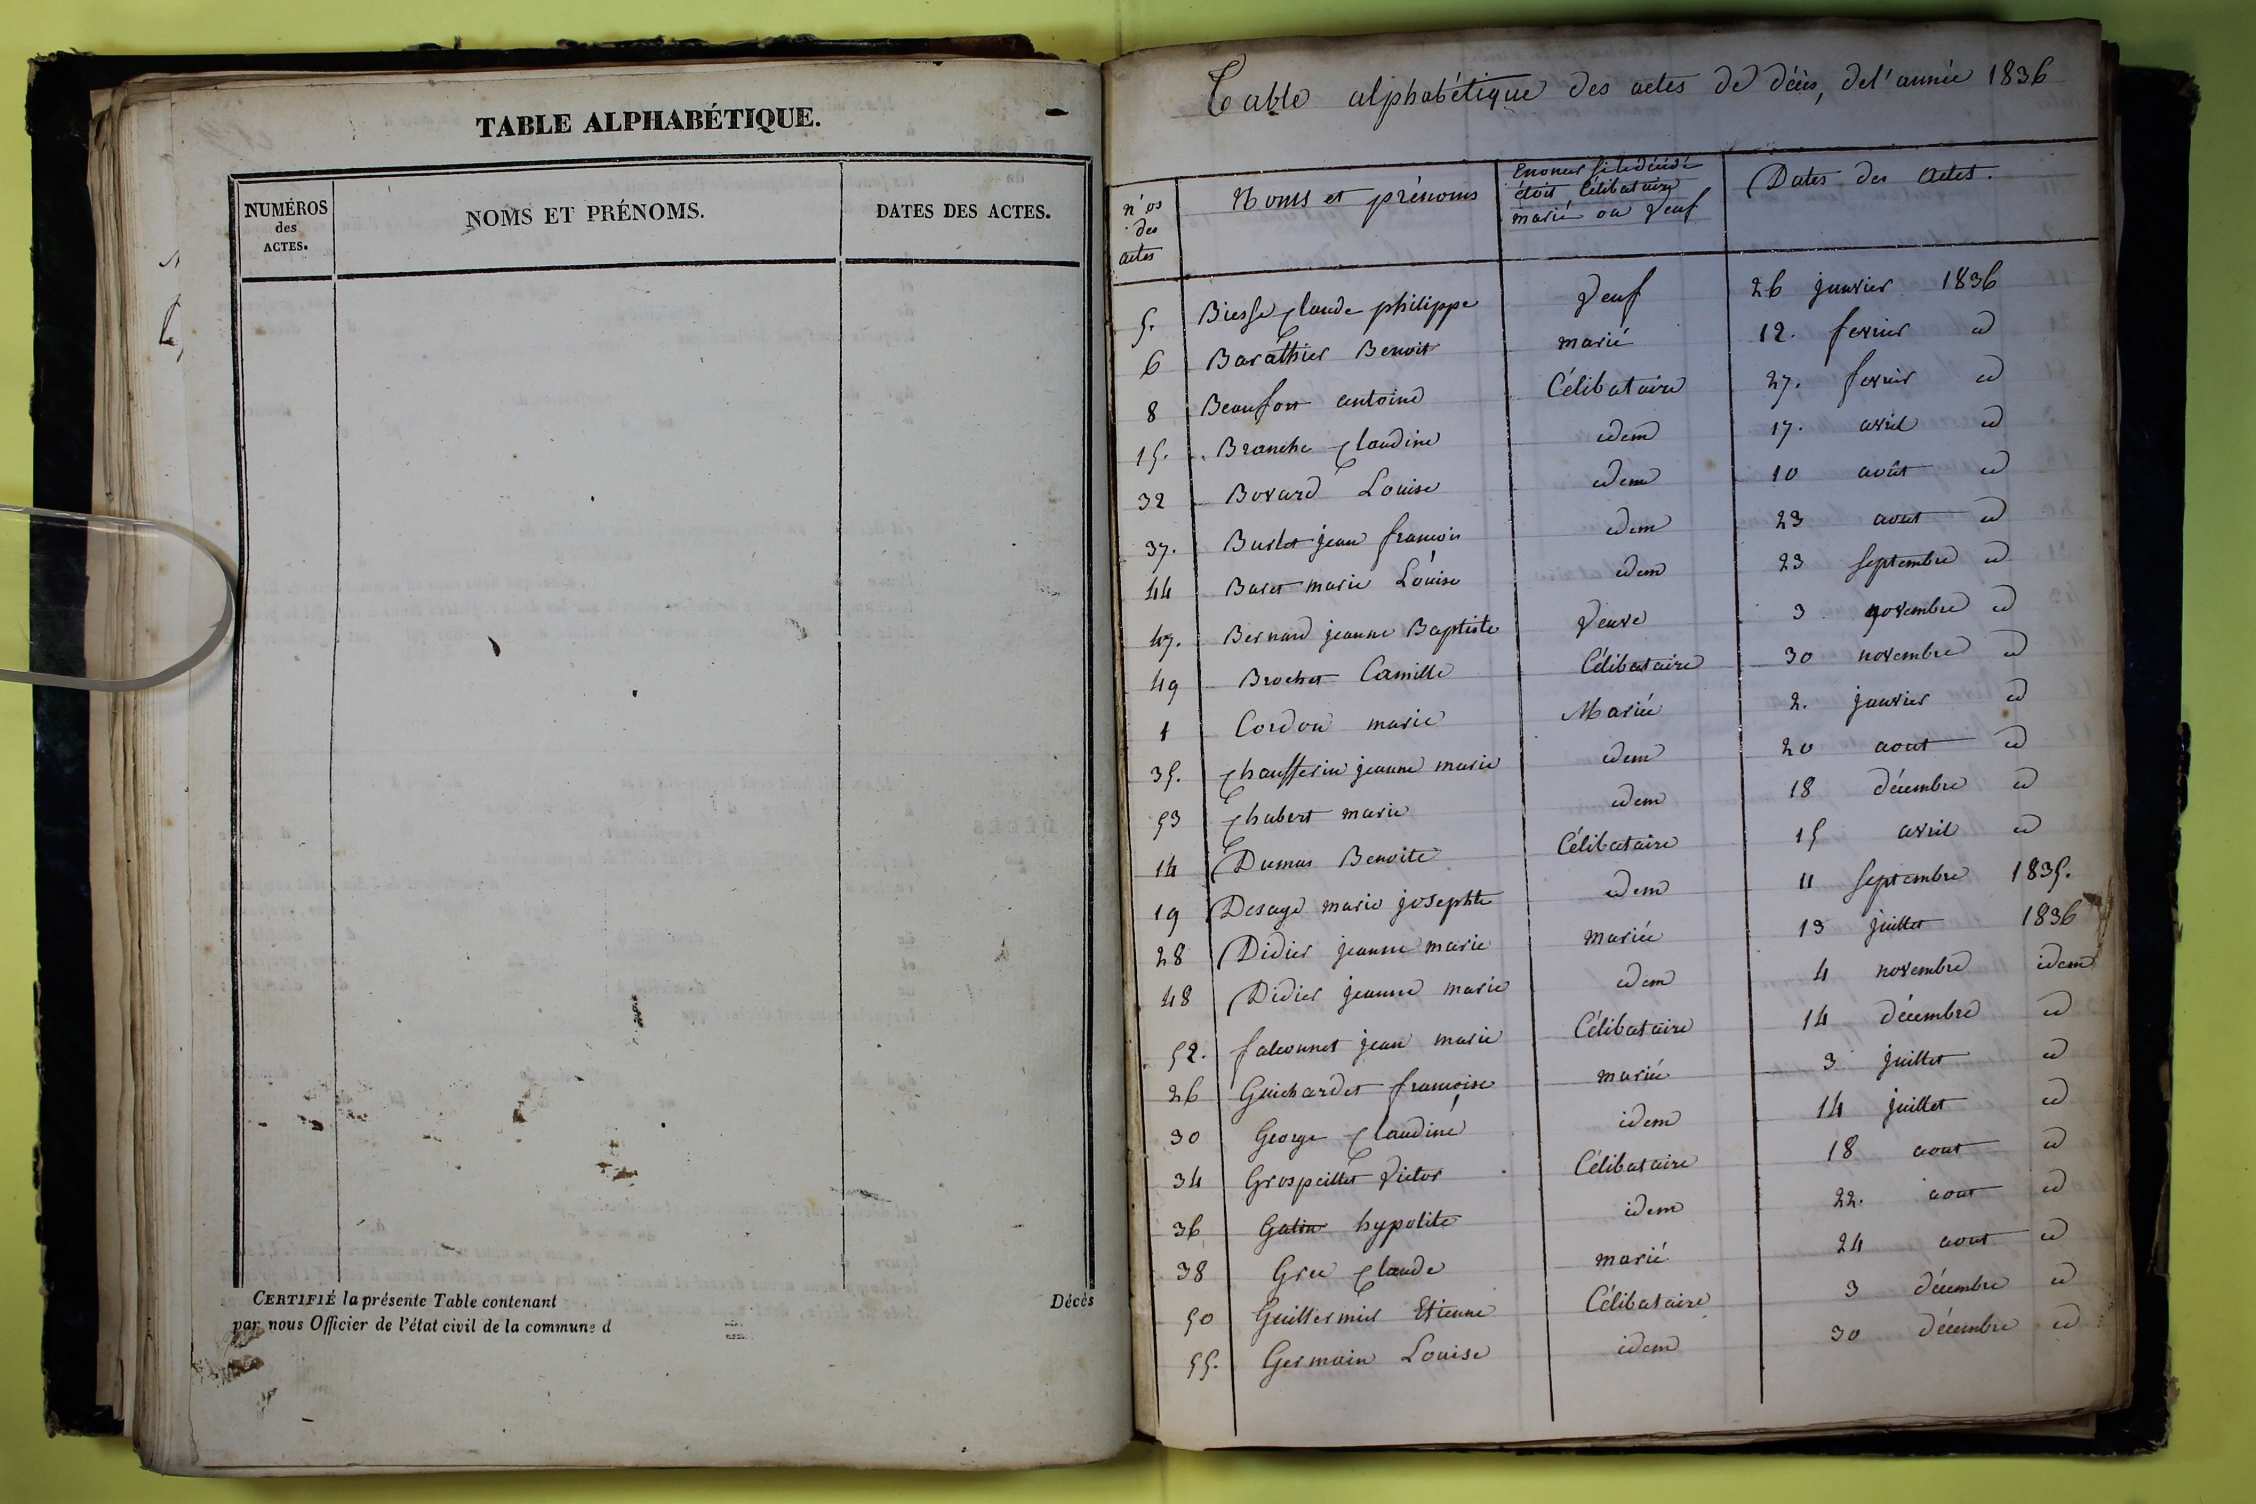 TABLE ALPHABÉTIQUE.
NUMÉROS des ACTES.
NOMS ET PRÉNOMS.
DATES DES ACTES.
CERTIFIÉ la présente Table contenant Décès
par nous Officier de l'état civil de la commune d
Table alphabétique des actes de décès, de l'année 1836
n'os des actes
Noms et prénoms
Enoncer si le décédé étoit Célibataire marié ou Veuf
Dates des Actes.
5. Biesse Claude philippe Veuf 26 janvier 1836
6 Barathier Benoit marié 12. fevrier id
8 Beaufort antoine Célibataire 27. fevrier id
15. Branche Claudine idem 17. avril id
32 Bovard Louise idem 10 août id
37. Burlet jean francois idem 23 aout id
44 Baret marie Louise idem 23 septembre id
47. Bernard jeanne Baptiste Veuve 3 novembre id
49 Brochet Camille Célibataire 30 novembre id
1 Cordon marie Mariée 2. janvier id
35. Chaufferin jeanne marie idem 20 aout id
53 Chabert marie idem 18 décembre id
14 Dumas Benoite Célibataire 15 avril id
19 Desaye marie josephte idem 11 septembre 1835.
28 Didier jeanne marie mariée 13 juillet 1836
48 Didier jeanne marie idem 4 novembre idem
52. falconnet jean marie Célibataire 14 décembre id
26 Guichardet francoise mariée 3 juillet id
30 George Claudine idem 14 juillet id
34 Grospeillet Victor Célibataire 18 aout id
36 Galin hypolite idem 22. aout id
38 Gree Claude marié 24 aout id
50 Guillermier Etienne Célibataire 3 décembre id
55. Germain Louise idem 30 décembre id